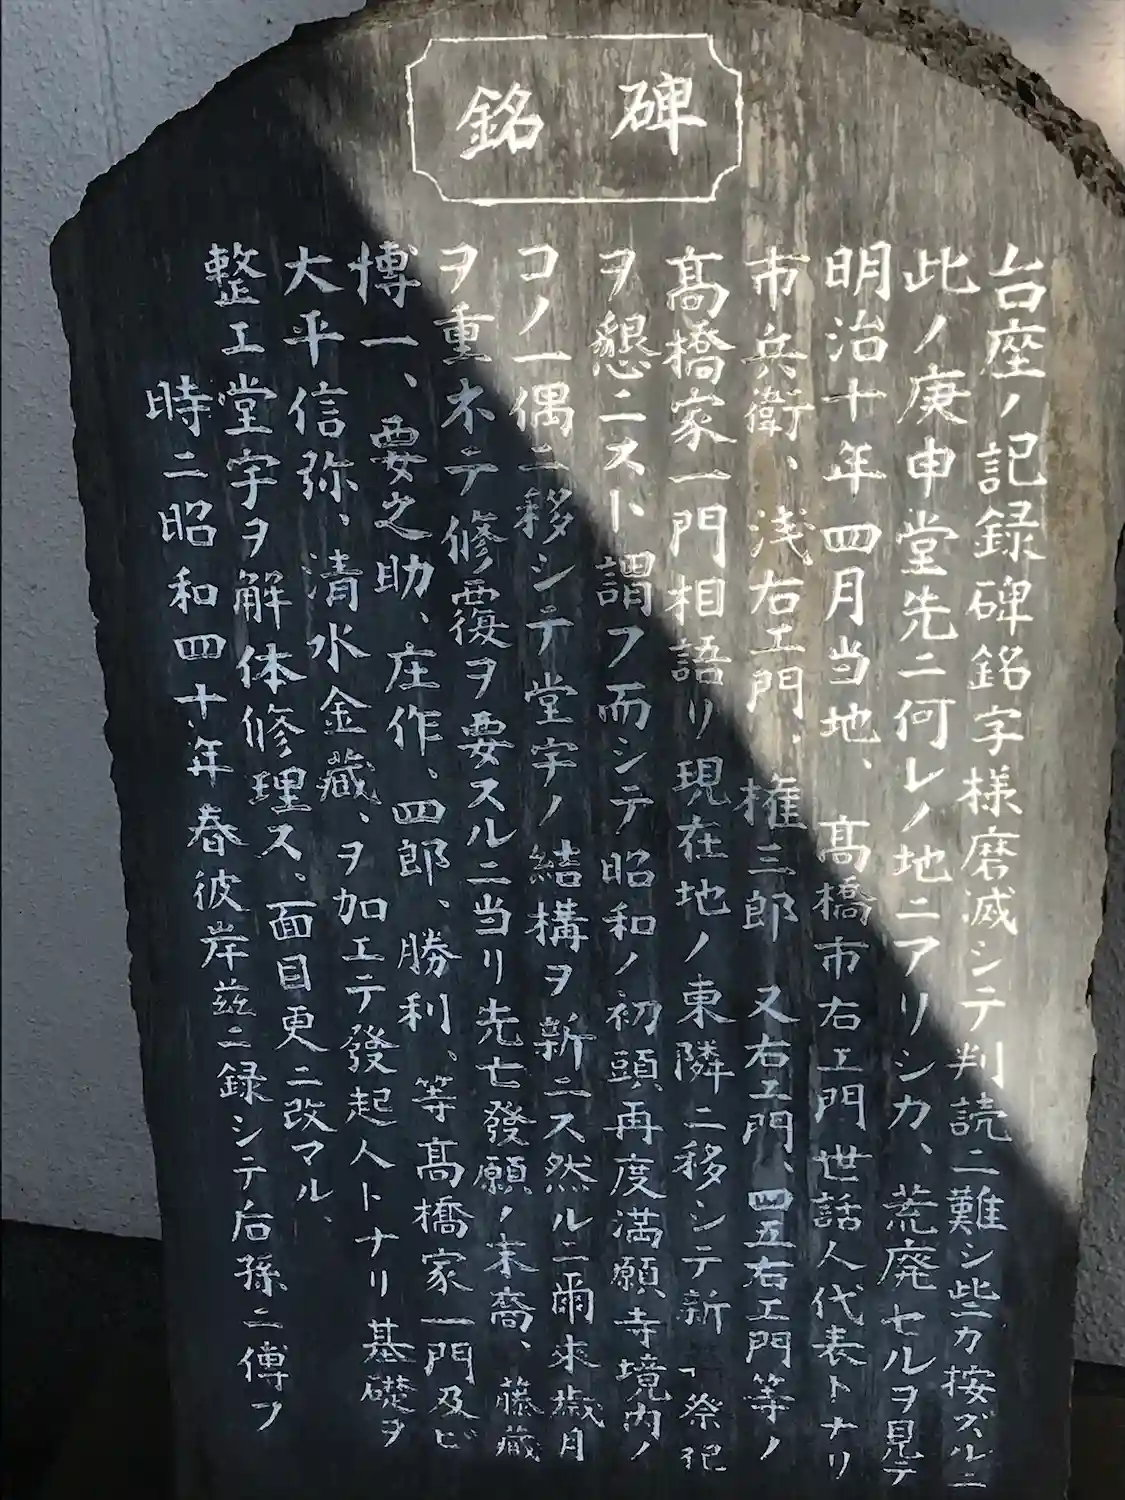 碑銘
台座ノ記録碑銘字様磨滅シテ判読ニ難シ些カ按ズルニ
此ノ庚申堂先ニ何レノ地ニアリシカ、荒廃セルヲ見テ
明治十年四月当地、髙橋市右エ門世話人代表トナリ
市兵衛、浅右エ門、権三郎 又右エ門、四五右エ門等ノ
髙橋家一門相語リ現在地ノ東隣ニ移シテ新「祭祀
ヲ懇ニスト謂フ而シテ昭和ノ初頭再度満願寺境内ノ
コノ一偶ニ移シテ堂宇ノ結構ヲ新ニス然ルニ爾来歳月
ヲ重ネテ修覆ヲ要スルニ当リ先亡發願ノ末裔、藤蔵
博一、要之助、庄作、四郎、勝利、等髙橋家一門及ビ
大平信弥、清水金藏、ヲ加エテ發起人トナリ基礎ヲ
整エ堂宇ヲ解体修理ス、面目更ニ改マル、
時ニ昭和四十年春彼岸茲ニ録シテ后孫ニ傳フ